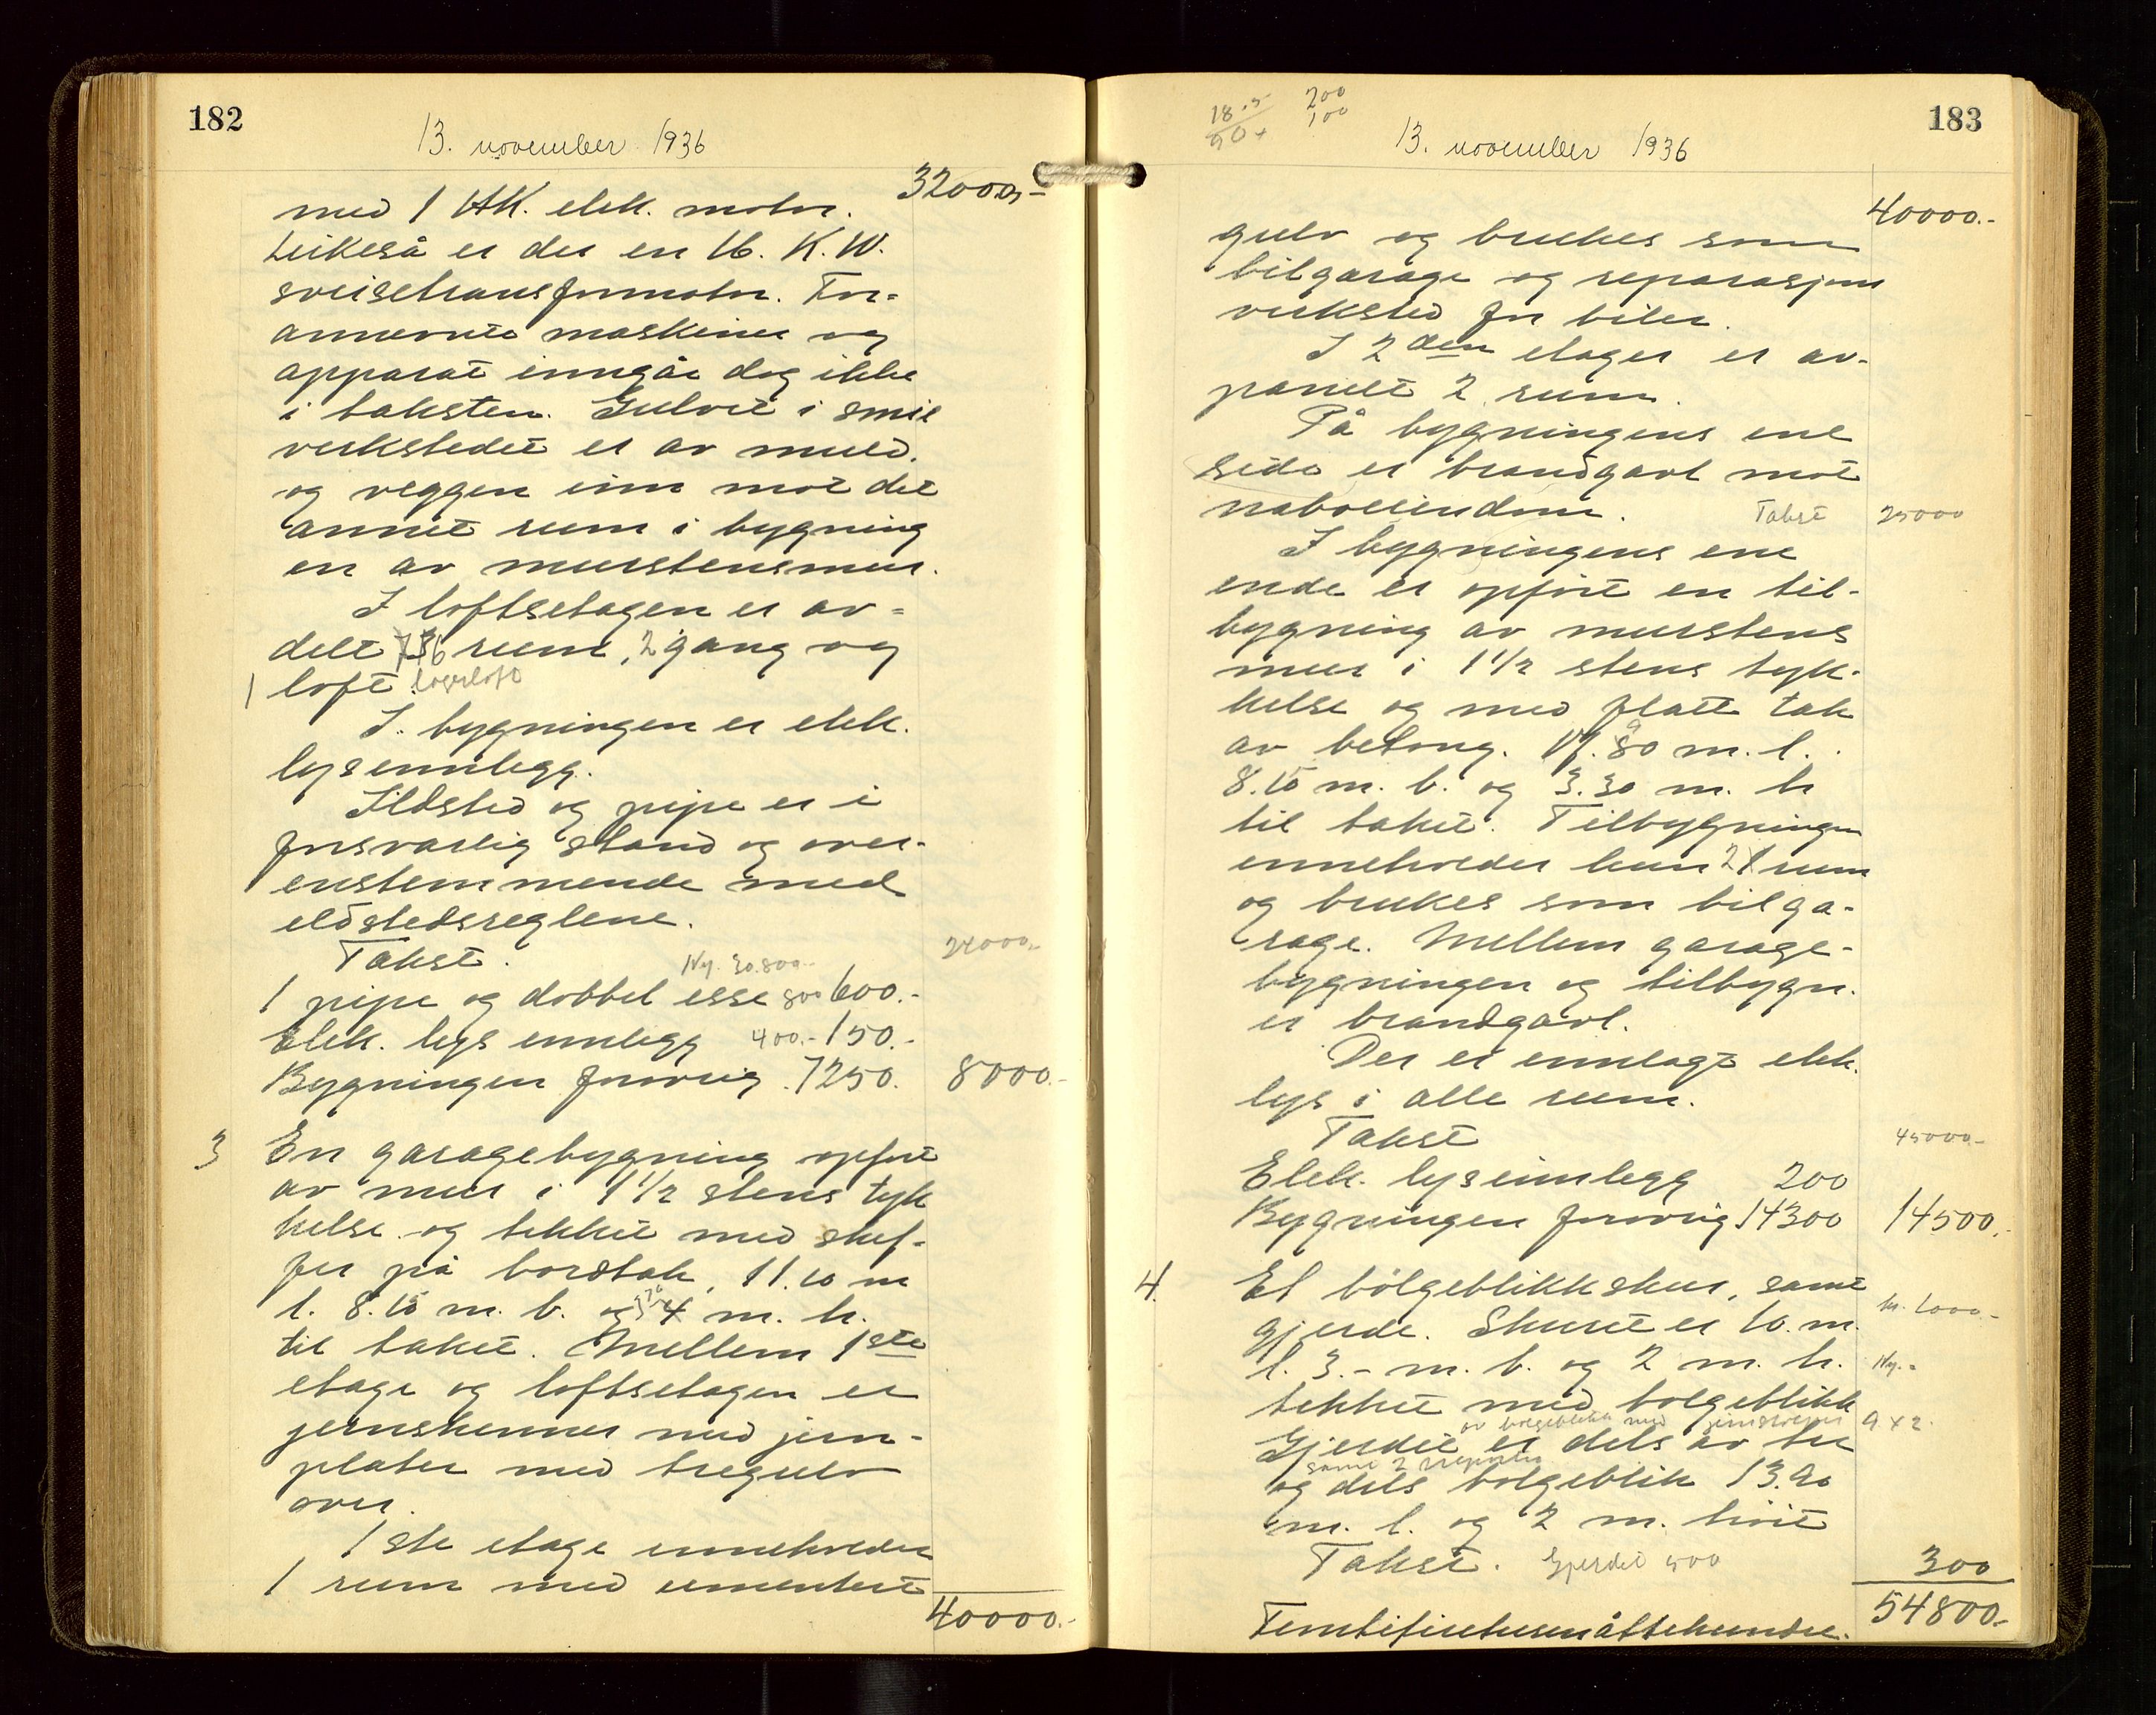 182
13. november 1936
32000.-
med 1 HK. elek. motor.
Leikeså er der en 16. K.W.
sveisetransformator. For-
annevnte maskiner og
apparat inngår dog ikke
i taksten. Gulvet i smie
verkstedet er av muld.
og veggen inn mot det
annet rum i bygning
en av murstensmur.
I loftsetagen er av-
delt 6 rum, 2 gang og
1 loft. lagerloft
I bygningen er elek.
lysinnlegg.
Ildsted og pipe er i
forsvarlig stand og over-
enstemmende med
ildstedsreglene.
Takst. Ny. 30.800.- 24000.-
1 pipe og dobbel esse 800 600.-
Elek. lys innlegg 400.- 150.-
Bygningen forøvrig. 7250. 8000.-
3 En garagebygning opført
av mur i 1 1/2 stens tyk
kelse og tekket med skif-
fer på bordtak, 11.10 m
l. 8.15 m. b. og 4 m. h.
til taket. Mellem 1ste
etage og loftsetagen er
jernskenner med jern-
plater med tregulv
over.
1ste etage inneholder
1 rum med sementert
40000.-
183
200
100
13. november 1936
40000.-
gulv og brukes som
bilgarage og reparasjons
verksted for biler.
I 2den etager er av-
panelt 2 rum.
På bygningens ene
side er brandgavl mot
naboeiendom. Takst 25000
I bygningens ene
ende er opført en til-
bygning av murstens
mur i 1 1/2 stens tyk-
kelse og med flatt tak
av betong. 17.80 m. l.
8.15 m. b. og 3.30 m. h
til taket. Tilbygningen
inneholder kun 2 1 rum
og brukes som bilga-
rage. Mellem garage-
bygningen og tilbygn.
er brandgavl.
Der er innlagt elek.
lys i alle rum.
Takst 45000.-
Elek. lysinnlegg 200
Bygningen forøvrig 14300 14500.-
4. Et bølgeblikkskur, samt
gjerde. Skuret er 10. m. kr. 1000.-
l. 3.- m. b. og 2 m. h. Ny.-
tekket med bølgeblikk
av bølgeblikk med jernstolper 9 x 2.
Gjerdet er dels av tre
samt 2
og dels bølgeblik 13.90
m. l. og 2 m. høit
Takst. Gjerdet 500 300
Femtifiretusenåttehundre. 54800.-